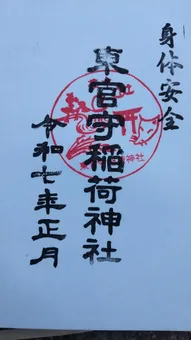 身体安全
東宮守稲荷神社
令和七年正月
神社